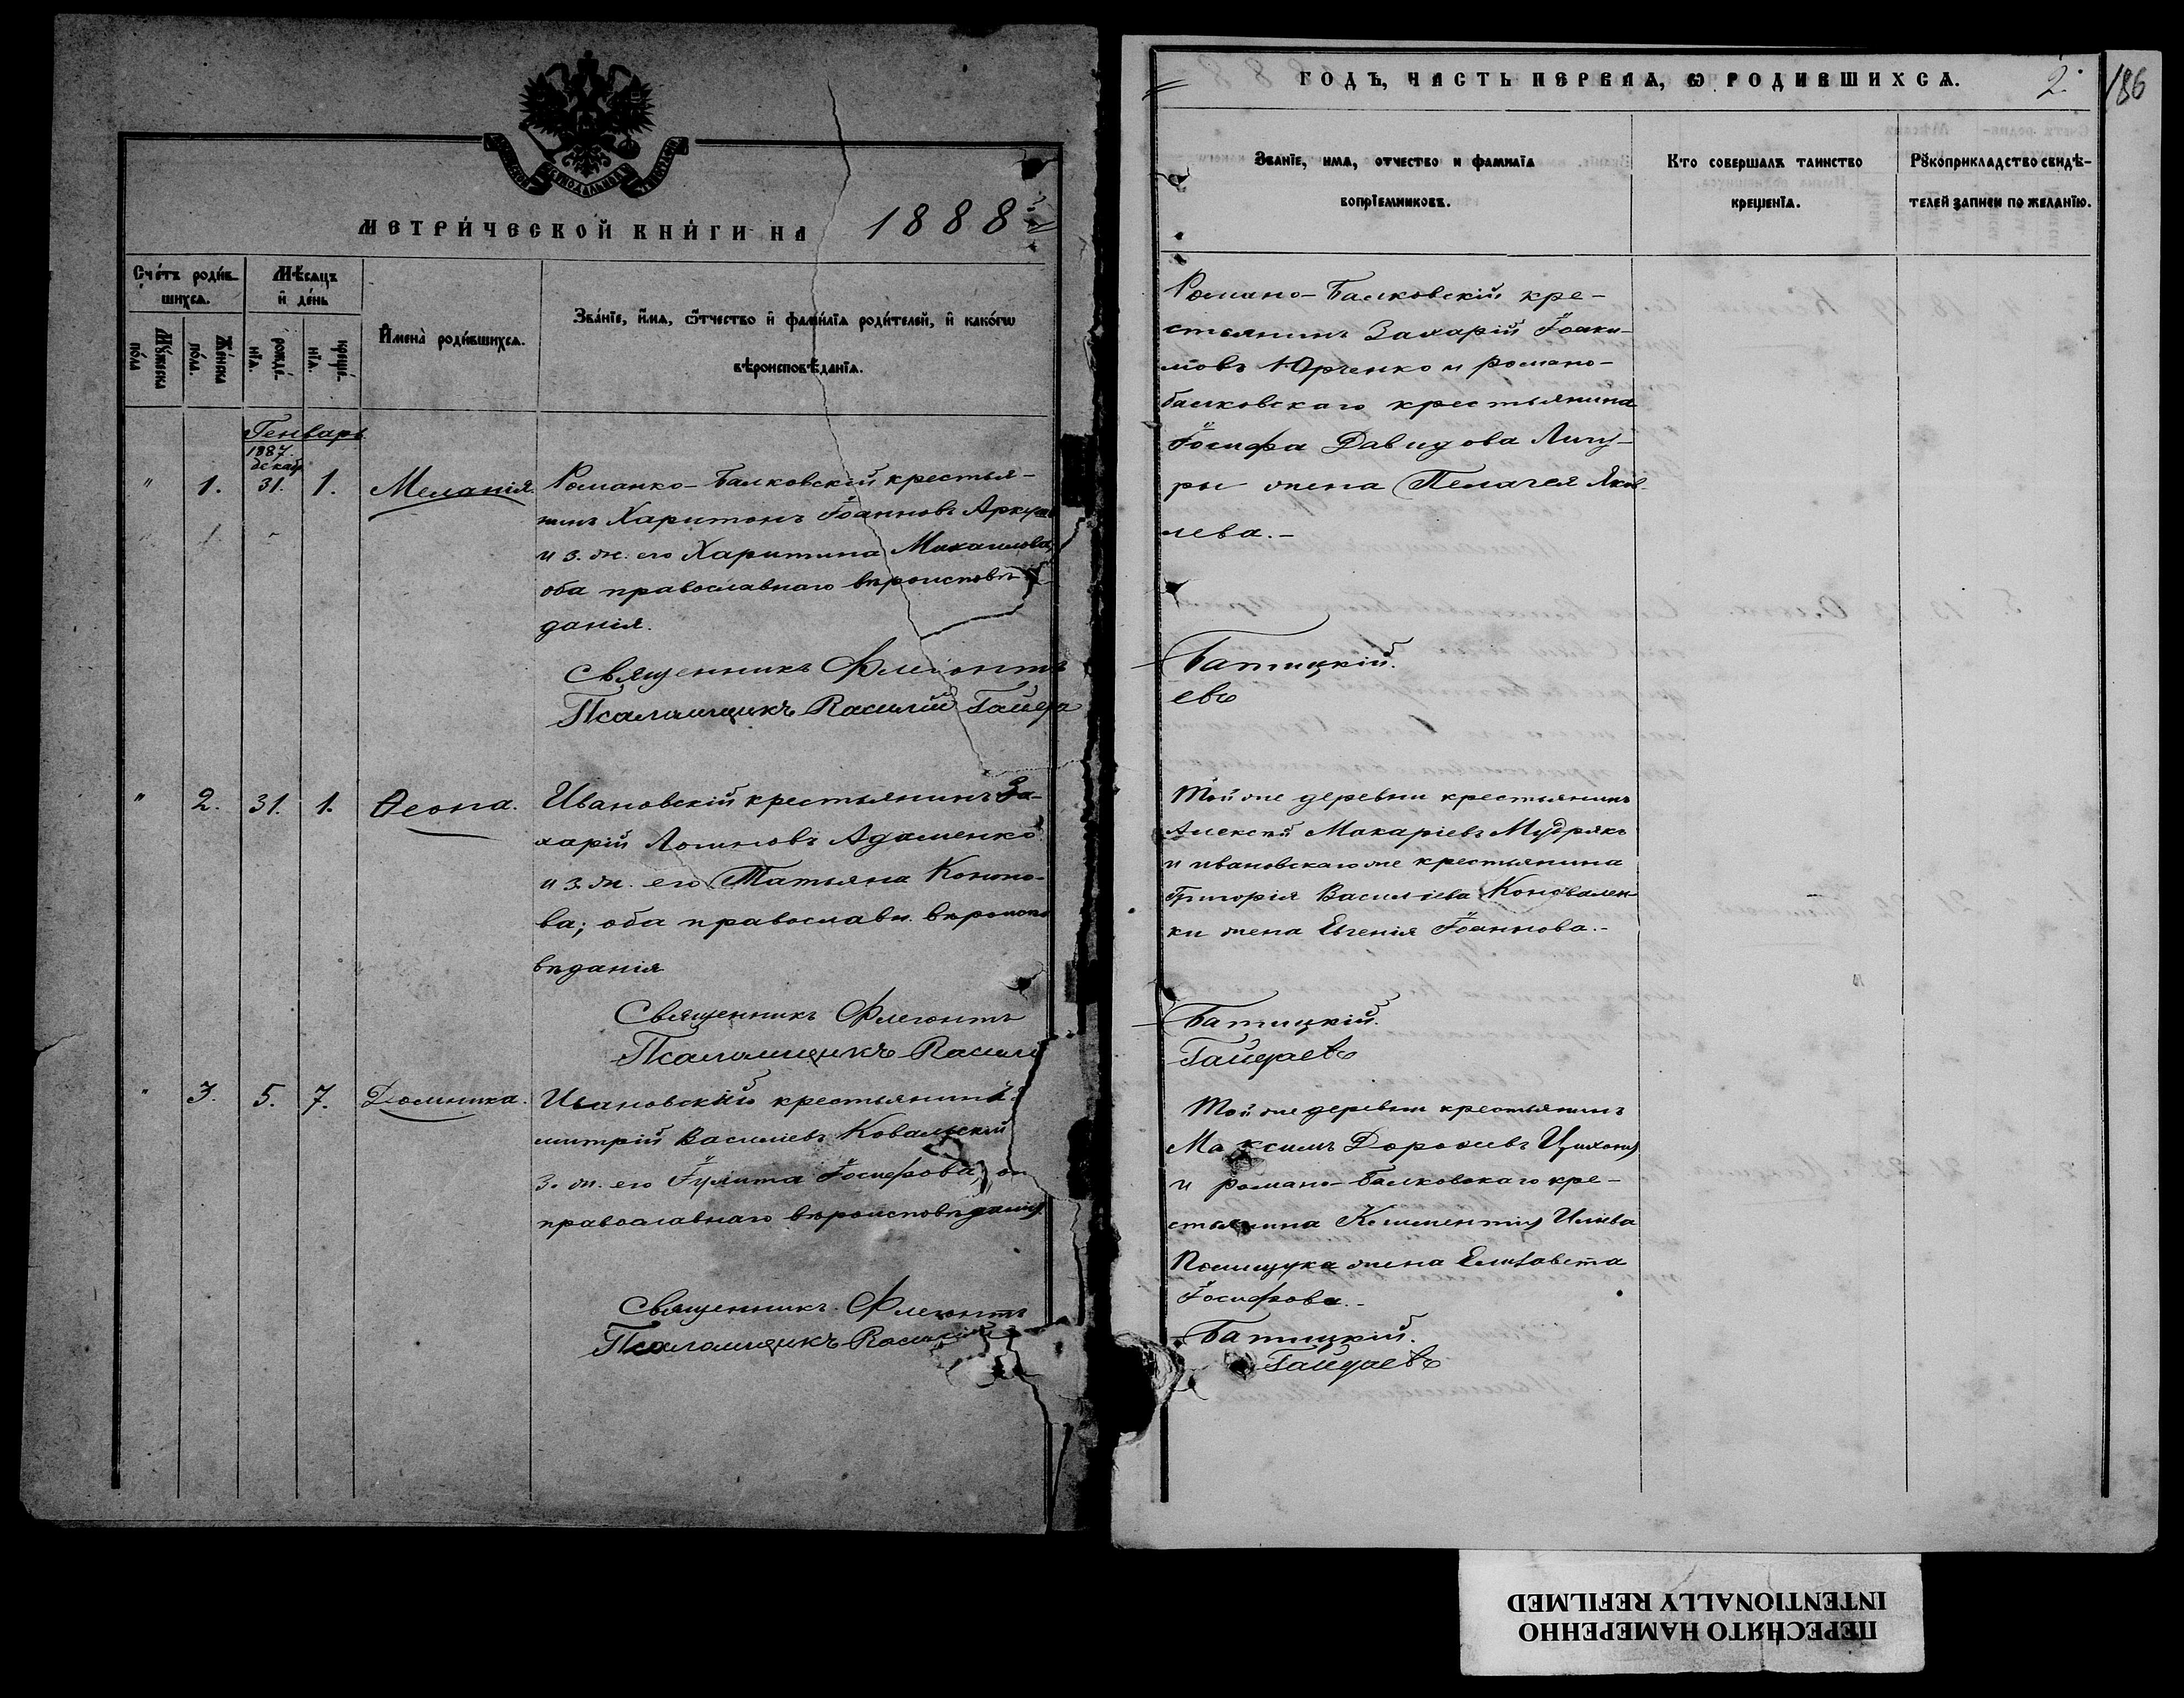 МЕТРИ́ЧЕСКОЙ КНИ́ГИ НА 1888
Сче́тъ роди́в-
шихсѧ.
Мѣ́сѧцъ
и҆ де́нь
Мꙋ́жеска
по́ла
Же́нска
по́ла.
рожде́-
нїѧ.
креще́-
нїѧ.
И҆мена̀ роди́вшихсѧ.
Зва́нїе, и҆́мѧ, ѻ҆́тчество и҆ фами́лїѧ роди́телей, и҆ како́гѡ
вѣроисповѣ́данїѧ.
Генварь
1887.
декаб.
" 1. 31. 1. Меланія.
Романко-Балковскій крестья-
нинъ Харитонъ Іоанновъ
и з. ж. его Харитина
оба православнаго вѣроисповѣ-
данія.
Священникъ Флегонтъ
Псаломщикъ Василій Гайда
" 2. 31. 1. Ѳеона.
Ивановскій крестьянинъ За-
харій Логиновъ Адаменко
и з. ж. его Татьяна Кононо-
ва; оба православн. вѣроиспо
вѣданія
Священникъ Флегонтъ
Псаломщикъ Василій
" 3. 5. 7. Домника.
Ивановскій крестьянинъ
митрій Василіевъ Ковальскій
з. ж. его Іулита Іосифова,
православнаго вѣроисповѣданія
Священникъ Флегонтъ
Псаломщикъ Василій
ГОДЪ, ЧАСТЬ ПЕРВАѦ, Ѡ РОДИВШИХСѦ.
2.
186
Званїе, имѧ, отчество и фамилїѧ
воспрїемниковъ.
Кто совершалъ таинство
крещенїѧ.
Рꙋкоприкладство свидѣ-
телей записи по желанїю.
Романо-Балковскій кре-
стьянинъ Захарій Іоаки-
мовъ Юрченко и романо-
балковскаго крестьянина
Іосифа Давидова
ры жена Пелагея Яков-
лева.-
Батицкій.
евъ
Той же деревни крестьянинъ
Алексѣй Макаріевъ Мудрякъ
и ивановскаго же крестьянина
Григорія Василіева Коновален-
ки жена Евгенія Іоаннова.-
Батицкій.
Гайдаевъ
Той же деревни крестьянинъ
Максимъ Дороѳеевъ
и романо-Балковскаго кре-
стьянина Климентія Иліева
Полищука жена Елисавета
Іосифова.-
Батицкій.
Гайдаевъ
ПЕРЕСНЯТО НАМЕРЕННО
INTENTIONALLY REFILMED